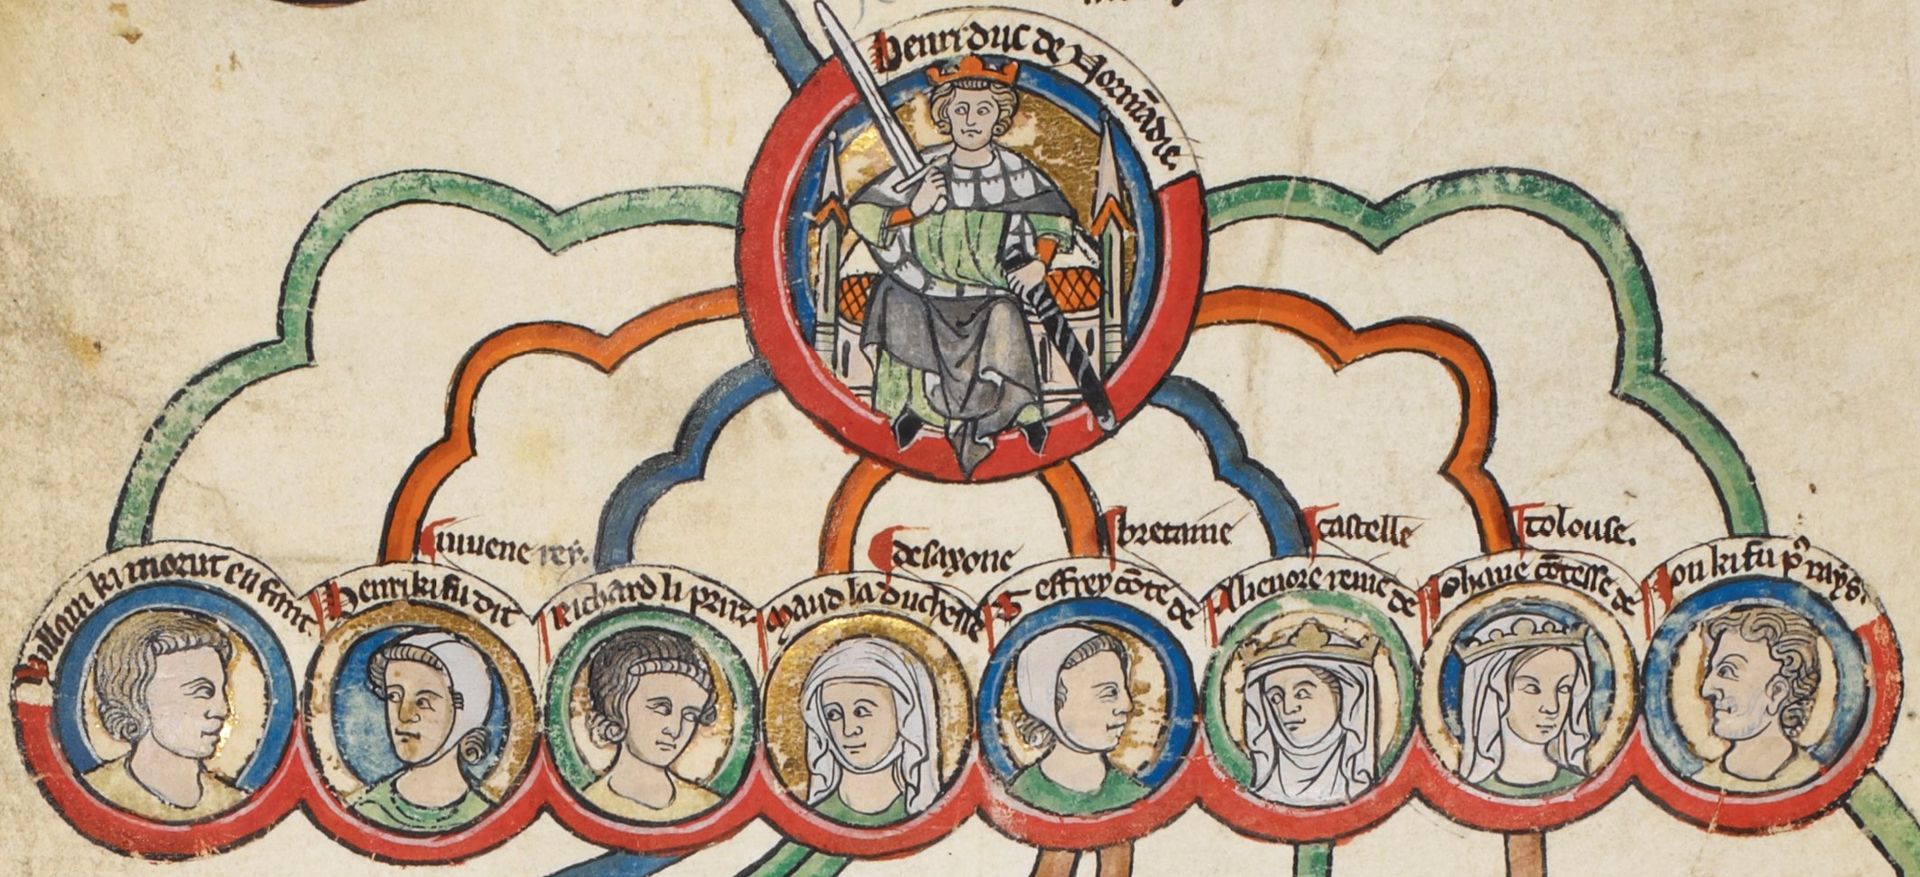 Henri duc de Normãdie.
Willam ki morut en fant.
Henri ki fu dit
iuuene rey.
Richard li prim.
Maud la duchesse
de saxone
Geffrey cõte de
bretaine
Alienore reine de
castelle
Johane cõtesse de
tolouse.
Jon ki fu pꝰ rays.